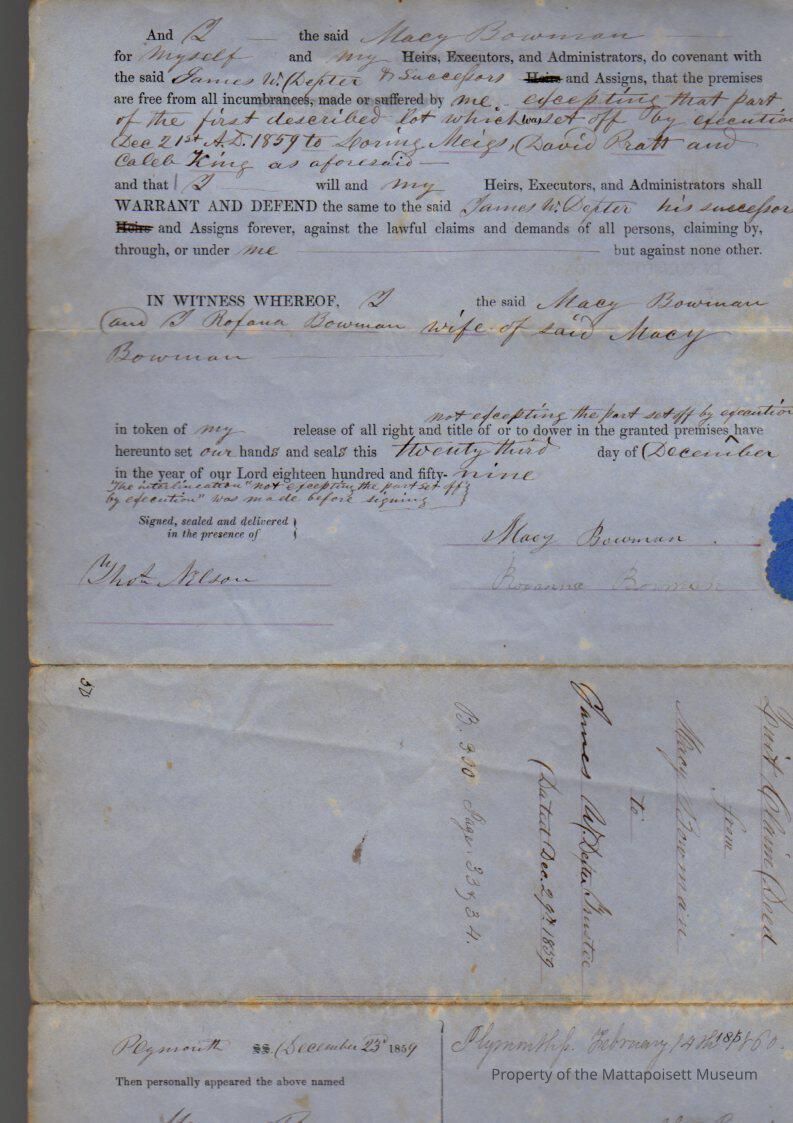 And I the said Macy Bowman
for myself and my Heirs, Executors, and Administrators, do covenant with
the said James W. Dexter & Successors Heirs and Assigns, that the premises
are free from all incumbrances, made or suffered by me. excepting that part
of the first described lot which was set off by execution
Dec 21st A.D. 1859 to Loring Meigs, David Pratt and
Caleb King as aforesaid
and that I will and my Heirs, Executors, and Administrators shall
WARRANT AND DEFEND the same to the said James W. Dexter his successors
Heirs and Assigns forever, against the lawful claims and demands of all persons, claiming by,
through, or under me but against none other.
IN WITNESS WHEREOF, I the said Macy Bowman
and I Roxana Bowman wife of said Macy
Bowman
not excepting the part set off by execution
in token of my release of all right and title of or to dower in the granted premises, have
hereunto set our hands and seals this twenty third day of December
in the year of our Lord eighteen hundred and fifty-nine
"The interlineation "not excepting the part set off
by execution" was made before signing
Signed, sealed and delivered
in the presence of
Macy Bowman
Thos. Nelson
Roxanna Bowman
Quit Claim Deed
from
Macy Bowman
to
James W. Dexter Trustee
(Dated Dec. 29th 1859
B. 300 Page 33 & 34.
Plymouth SS. December 23d 1859
Plymouth ss. February 14th 1860.
Then personally appeared the above named
Property of the Mattapoisett Museum